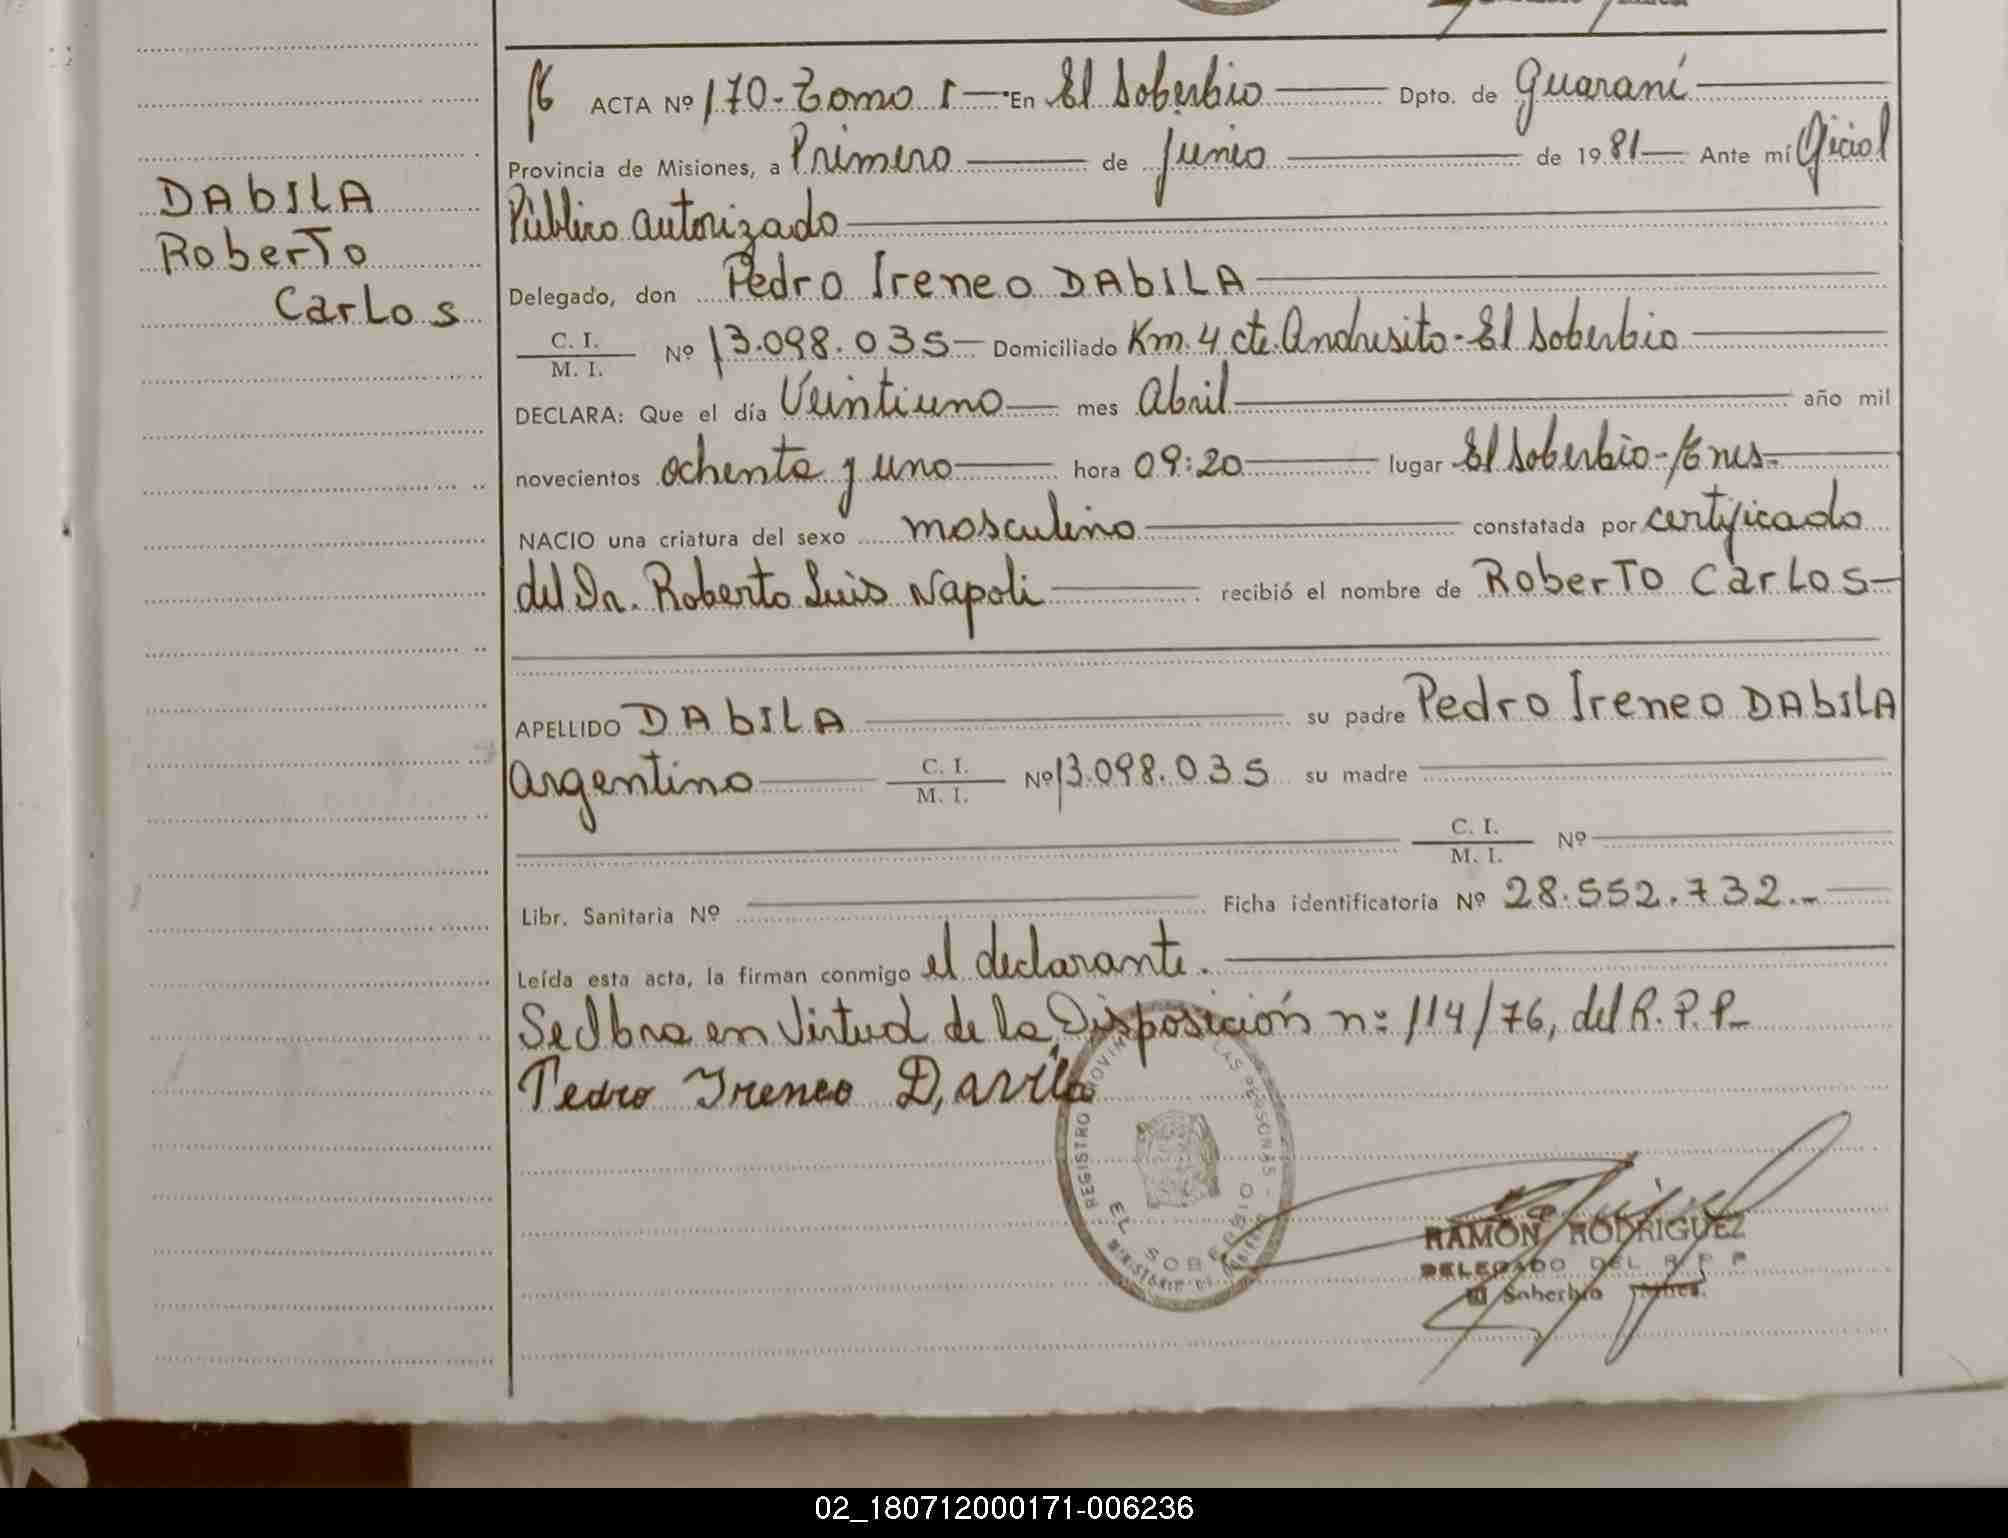 DAbILA
RoberTo
CarLos
ACTA Nº 170-Tomo I En El Soberbio Dpto. de Guaraní
Provincia de Misiones, a Primero de Junio de 1981 Ante mí Oficial
Público autorizado
Delegado, don Pedro Ireneo DAbILA
C. I.
M. I.
Nº 13.098.035 Domiciliado Km. 4 cte. Andresito - El Soberbio
DECLARA: Que el día Veintiuno mes Abril año mil
novecientos ochenta y uno hora 09:20 lugar El Soberbio-
NACIO una criatura del sexo masculino constatada por certificado
del Dr. Roberto Luis Napoli recibió el nombre de RoberTo CarLos
APELLIDO DAbILA su padre Pedro Ireneo DAbILA
argentino C. I.
M. I. Nº 13.098.035 su madre
C. I.
M. I. Nº
Libr. Sanitaria Nº Ficha identificatoria Nº 28.552.732.-
Leída esta acta, la firman conmigo el declarante.
Se Obra en Virtud de la Disposición nº 114/76, del R.P.P.
Pedro Ireneo D,avila
REGISTRO PROVINCIAL LAS PERSONAS -
EL SOBERBIO
MINISTERIO DE GOBIERNO
RAMON RODRIGUEZ
DELEGADO DEL R P P
El Soberbio Mnes.
02_180712000171-006236